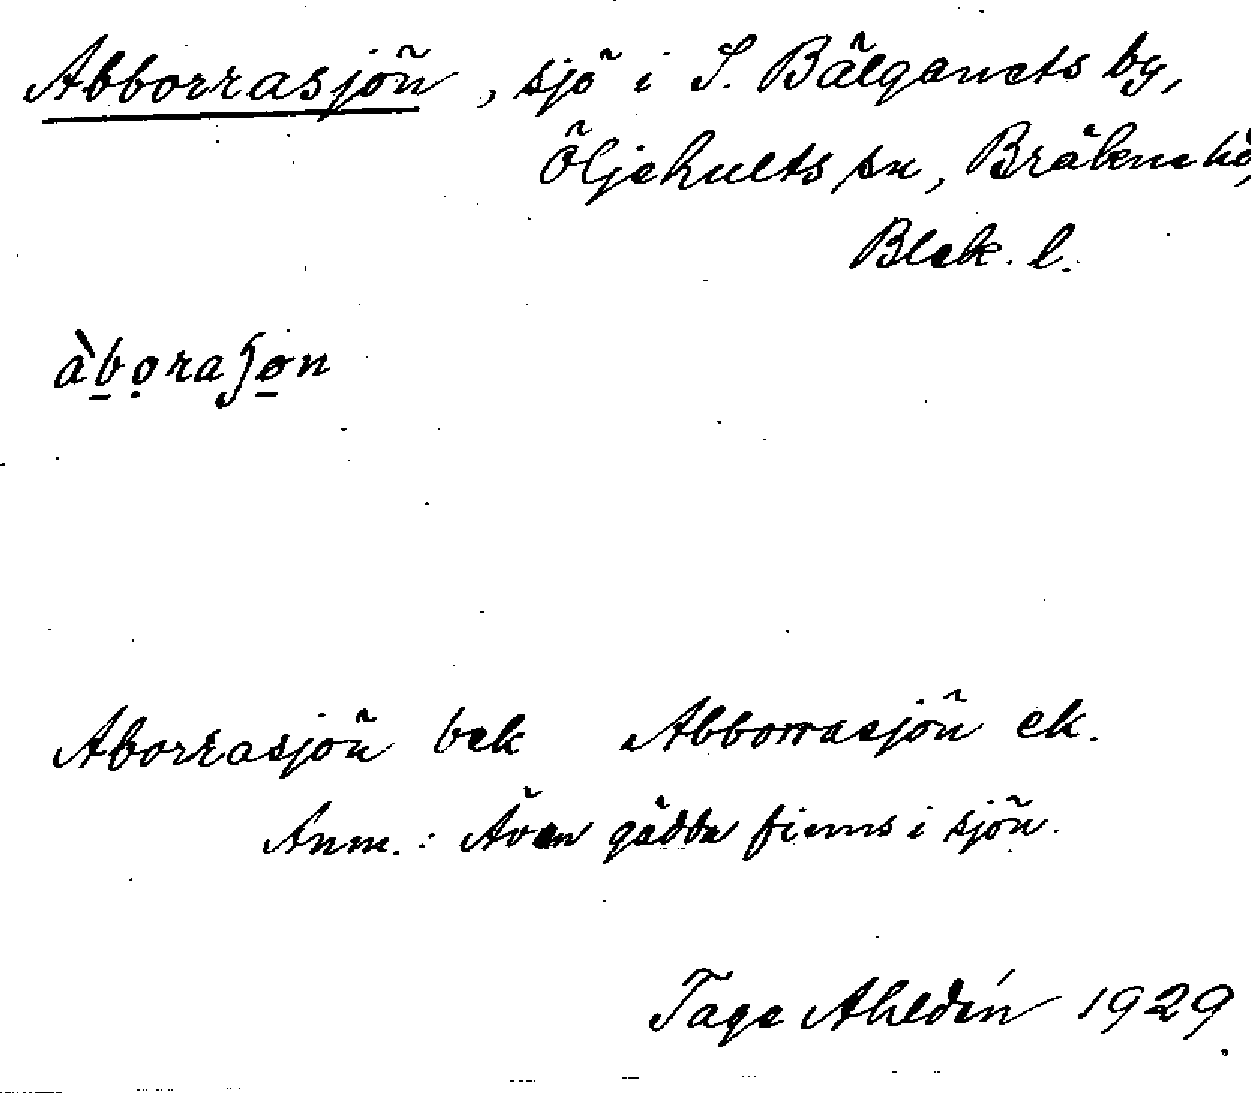 Abborrasjön, sjö i S. Bälganets by,
Öljehults sn, Bräkne hd,
Blek. l.
àboraʃøn
Aborrasjön bek Abborrasjön ek.
Anm.: Även gädda finns i sjön.
Tage Ahldén 1929